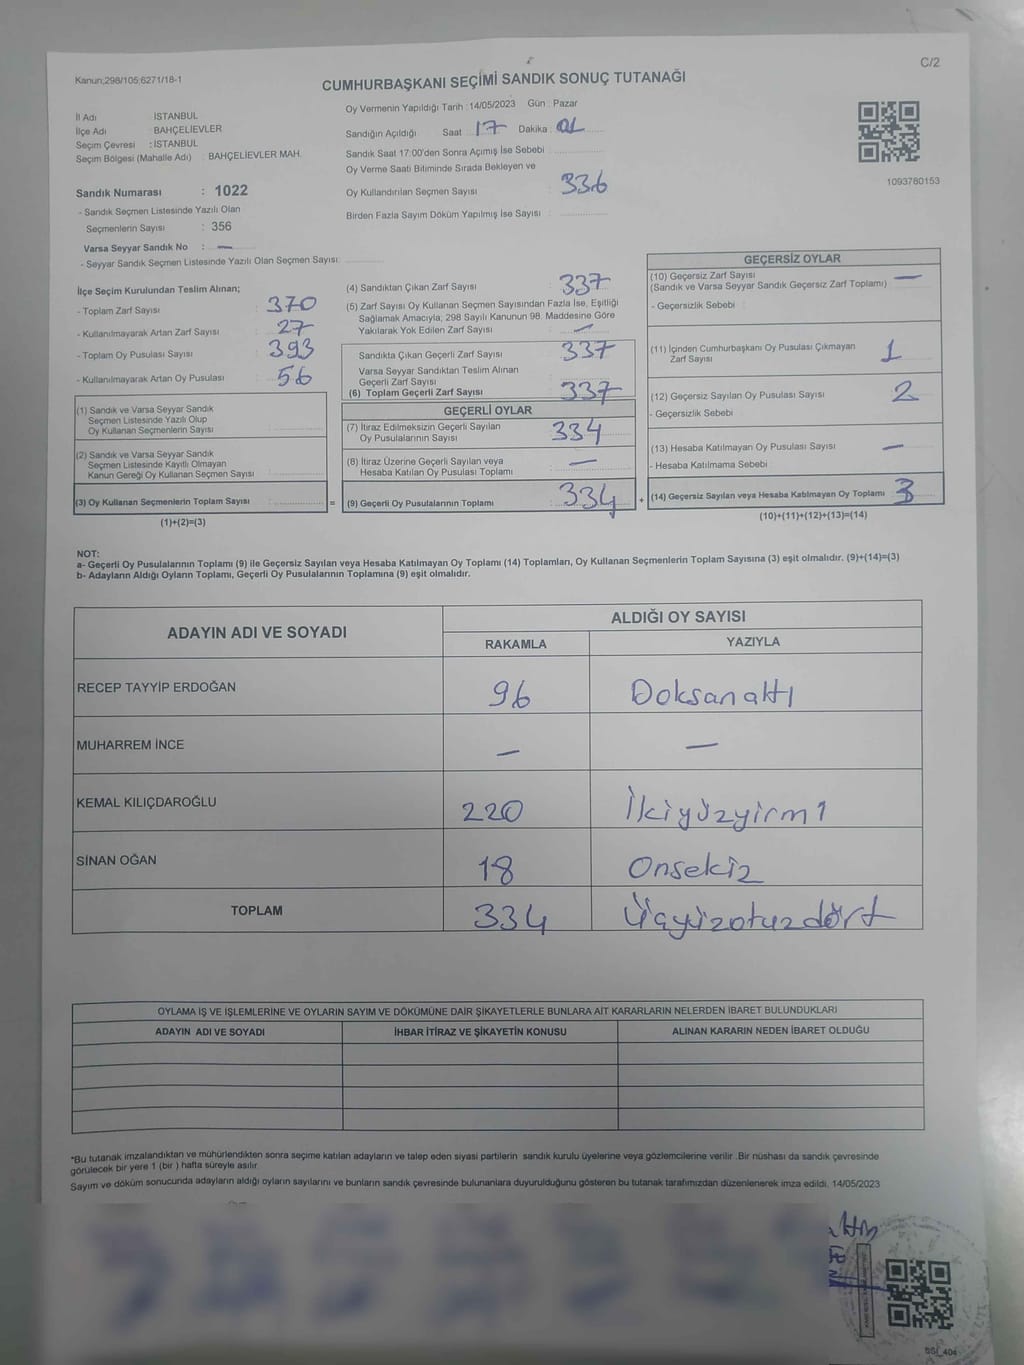 C/2
Kanun;298/105;6271/18-1
CUMHURBAŞKANI SEÇİMİ SANDIK SONUÇ TUTANAĞI
İl Adı İSTANBUL
İlçe Adı : BAHÇELİEVLER
Seçim Çevresi : İSTANBUL
Seçim Bölgesi (Mahalle Adı) : BAHÇELİEVLER MAH.
Sandık Numarası : 1022
- Sandık Seçmen Listesinde Yazılı Olan
Seçmenlerin Sayısı : 356
Varsa Seyyar Sandık No : —
- Seyyar Sandık Seçmen Listesinde Yazılı Olan Seçmen Sayısı:
Oy Vermenin Yapıldığı Tarih :14/05/2023 Gün : Pazar
Sandığın Açıldığı Saat 17 Dakika : 01
Sandık Saat 17:00'den Sonra Açımış İse Sebebi :
Oy Verme Saati Bitiminde Sırada Bekleyen ve
Oy Kullandırılan Seçmen Sayısı : 336
Birden Fazla Sayım Döküm Yapılmış İse Sayısı :
1093780153
İlçe Seçim Kurulundan Teslim Alınan;
- Toplam Zarf Sayısı : 370
- Kullanılmayarak Artan Zarf Sayısı : 27
- Toplam Oy Pusulası Sayısı : 393
- Kullanılmayarak Artan Oy Pusulası : 56
(1) Sandık ve Varsa Seyyar Sandık
Seçmen Listesinde Yazılı Olup
Oy Kullanan Seçmenlerin Sayısı :
(2) Sandık ve Varsa Seyyar Sandık
Seçmen Listesinde Kayıtlı Olmayan
Kanun Gereği Oy Kullanan Seçmen Sayısı :
(3) Oy Kullanan Seçmenlerin Toplam Sayısı : =
(1)+(2)=(3)
(4) Sandıktan Çıkan Zarf Sayısı : 337
(5) Zarf Sayısı Oy Kullanan Seçmen Sayısından Fazla İse, Eşitliği
Sağlamak Amacıyla; 298 Sayılı Kanunun 98. Maddesine Göre
Yakılarak Yok Edilen Zarf Sayısı : —
Sandıkta Çıkan Geçerli Zarf Sayısı : 337
Varsa Seyyar Sandıktan Teslim Alınan
Geçerli Zarf Sayısı :
(6) Toplam Geçerli Zarf Sayısı : 337
GEÇERLİ OYLAR
(7) İtiraz Edilmeksizin Geçerli Sayılan
Oy Pusulalarının Sayısı : 334
(8) İtiraz Üzerine Geçerli Sayılan veya : —
Hesaba Katılan Oy Pusulası Toplamı
(9) Geçerli Oy Pusulalarının Toplamı : 334 +
GEÇERSİZ OYLAR
(10) Geçersiz Zarf Sayısı : —
(Sandık ve Varsa Seyyar Sandık Geçersiz Zarf Toplamı)
- Geçersizlik Sebebi :
(11) İçinden Cumhurbaşkanı Oy Pusulası Çıkmayan
Zarf Sayısı : 1
(12) Geçersiz Sayılan Oy Pusulası Sayısı : 2
- Geçersizlik Sebebi :
(13) Hesaba Katılmayan Oy Pusulası Sayısı : —
- Hesaba Katılmama Sebebi :
(14) Geçersiz Sayılan veya Hesaba Katılmayan Oy Toplamı : 3
(10)+(11)+(12)+(13)=(14)
NOT:
a- Geçerli Oy Pusulalarının Toplamı (9) ile Geçersiz Sayılan veya Hesaba Katılmayan Oy Toplamı (14) Toplamları, Oy Kullanan Seçmenlerin Toplam Sayısına (3) eşit olmalıdır. (9)+(14)=(3)
b- Adayların Aldığı Oyların Toplamı, Geçerli Oy Pusulalarının Toplamına (9) eşit olmalıdır.
ADAYIN ADI VE SOYADI
ALDIĞI OY SAYISI
RAKAMLA YAZIYLA
RECEP TAYYİP ERDOĞAN 96 Doksanaltı
MUHARREM İNCE — —
KEMAL KILIÇDAROĞLU 220 İkiyüzyirmi
SİNAN OĞAN 18 Onsekiz
TOPLAM 334 Üçyüzotuzdört
OYLAMA İŞ VE İŞLEMLERİNE VE OYLARIN SAYIM VE DÖKÜMÜNE DAİR ŞİKAYETLERLE BUNLARA AİT KARARLARIN NELERDEN İBARET BULUNDUKLARI
ADAYIN ADI VE SOYADI İHBAR İTİRAZ VE ŞİKAYETİN KONUSU ALINAN KARARIN NEDEN İBARET OLDUĞU
*Bu tutanak imzalandıktan ve mühürlendikten sonra seçime katılan adayların ve talep eden siyasi partilerin sandık kurulu üyelerine veya gözlemcilerine verilir .Bir nüshası da sandık çevresinde
görülecek bir yere 1 (bir ) hafta süreyle asılır.
Sayım ve döküm sonucunda adayların aldığı oyların sayılarını ve bunların sandık çevresinde bulunanlara duyurulduğunu gösteren bu tutanak tarafımızdan düzenlenerek imza edildi. 14/05/2023